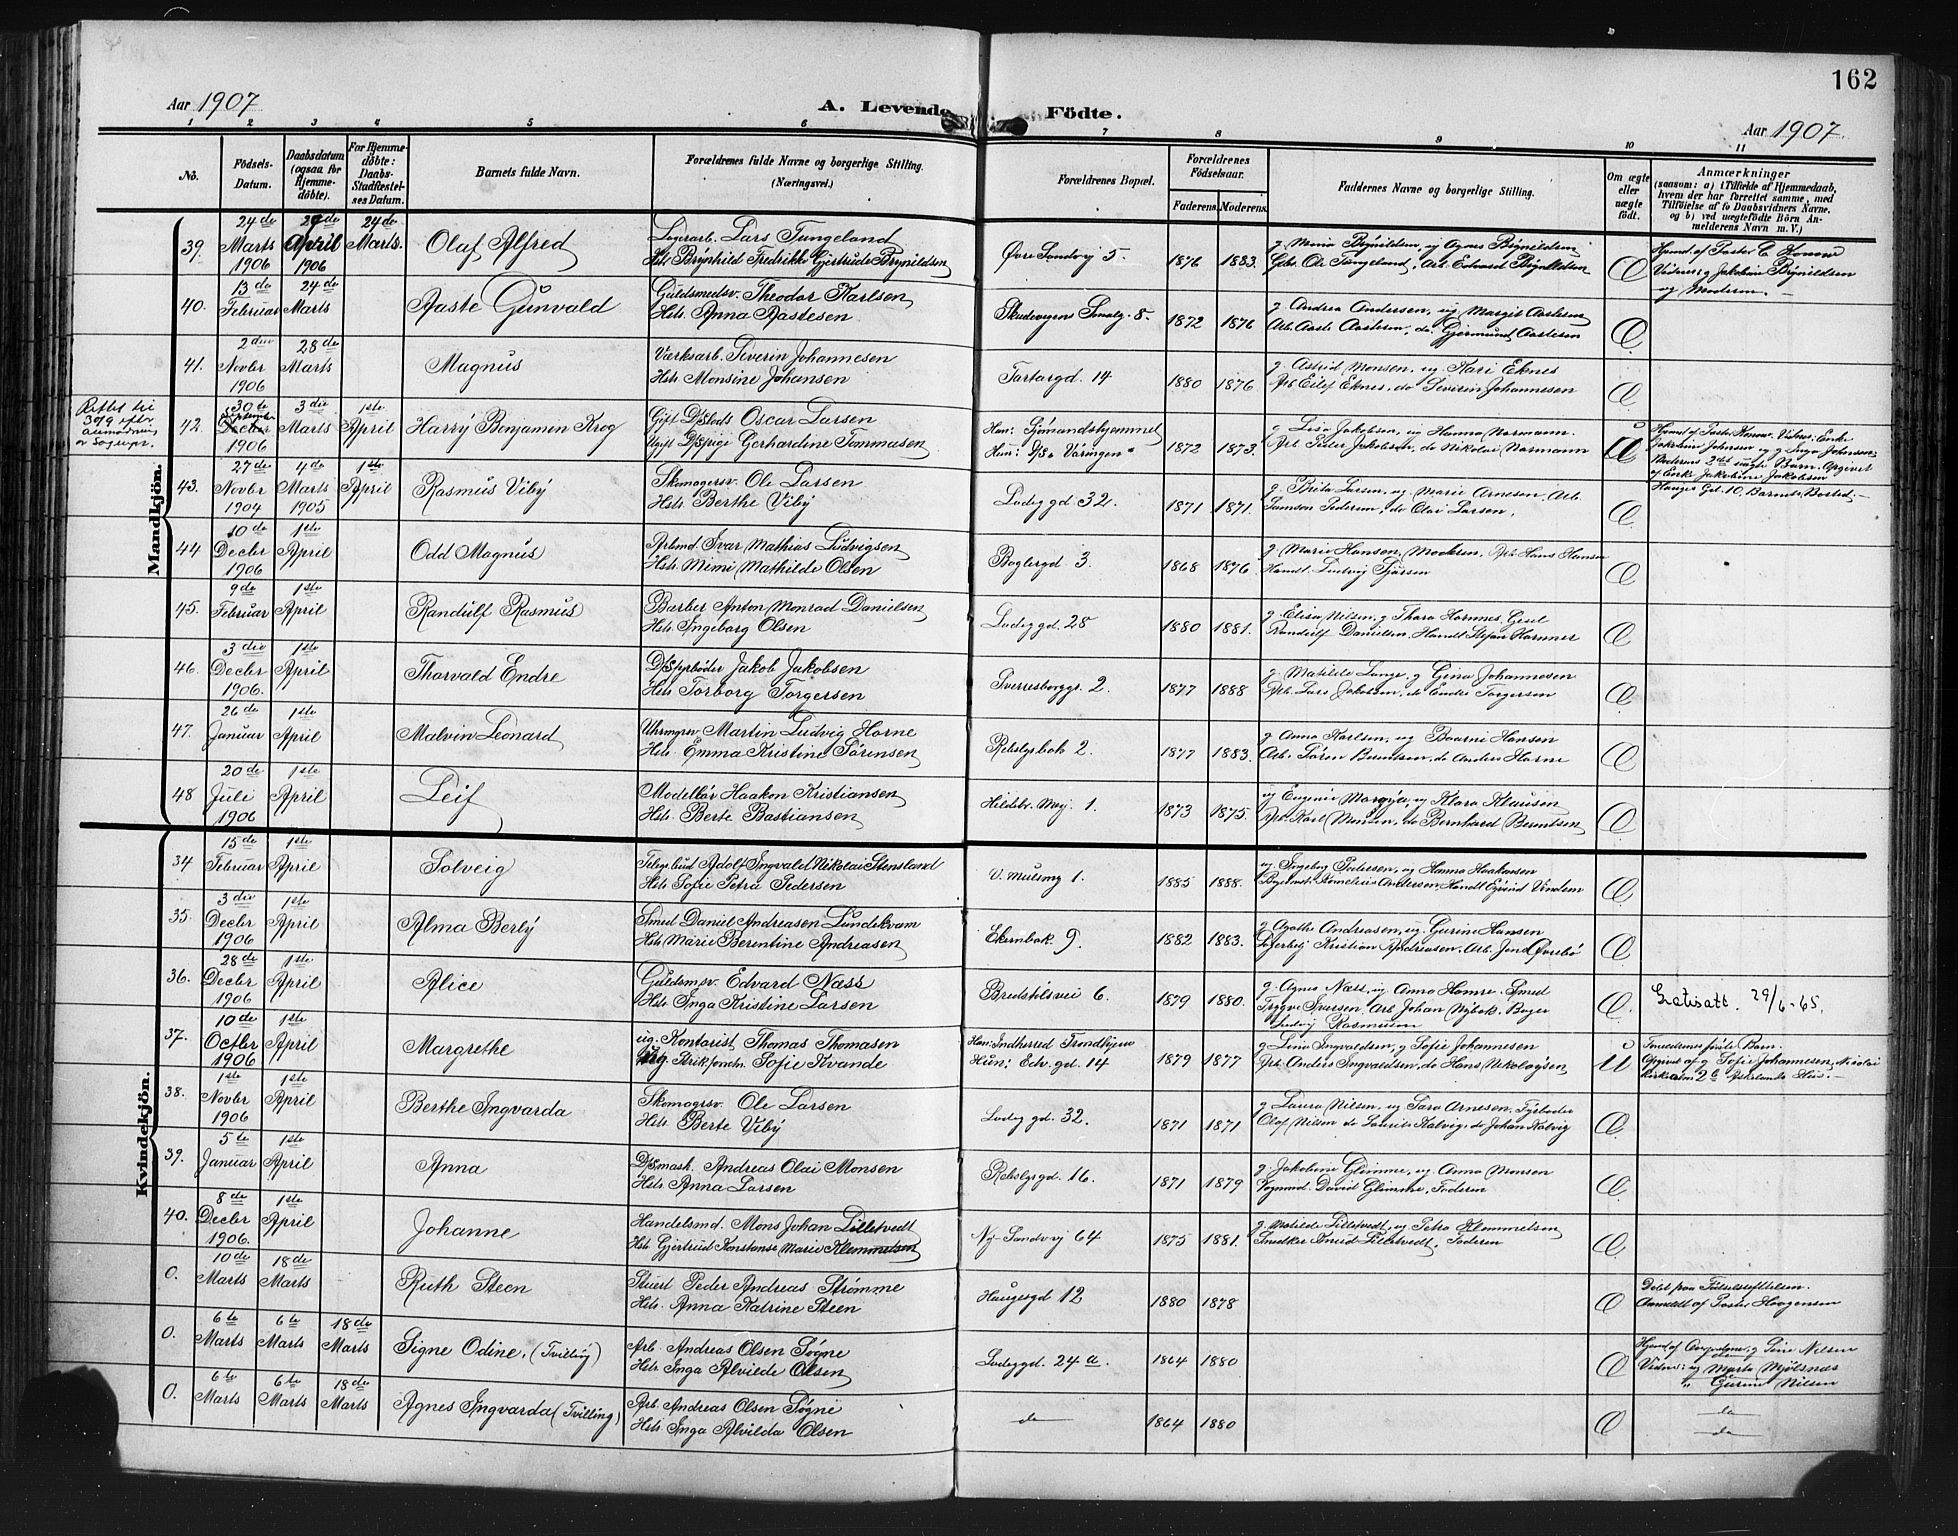 162
Aar 1907
A. Levende Födte.
Aar 1907.
1 2 3 4 5 6 7 8 9 10 11
No.
Födsels-Datum.
Daabsdatum (ogsaa for Hjemme-døbte).
For Hjemme-døbte: Daabs-Stadfæstel-ses Datum.
Barnets fulde Navn.
Forældrenes fulde Navne og borgerlige Stilling.
(Næringsvei.)
Forældrenes Bopæl.
Forældrenes Födselsaar.
Faderens. Moderens.
Faddernes Navne og borgerlige Stilling.
Om ægte eller uægte födt.
Anmærkninger
(saasom: a) i Tilfælde af Hjemmedaab, hvem der har forrettet samme, med Tilföielse af to Daabsvidners Navne, og b) ved uægtefödte Börn An-melderens Navn m. V.)
Mandkjön.
39. 24de Marts 1906 29de April 1906 24de Marts. Olaf Alfred
Lagerarb. Lars Tungeland
Hst. Brynhild Fredrikke Gjertrude Brynildsen
Øvre Sandvig 5. 1876 1883.
g. Maria Brynildsen, ug Agnes Brynildsen
Gb. Ole Tungeland, Arb. Edvard Brynildsen
Æ
Hjemd. af Pastor C. Honoré
Vidner: g Jakobine Brynildsen
og Moderen. —
40. 13de Februar 24de Marts Aaste Gunvald
Guldsmedsv. Theodor Karlsen
Hst. Anna Aastesen
Skudevigens Smalg. 8. 1872 1876
g. Andrea Andersen, ug Margit Aastesen
Arb. Aaste Aastesen, do. Gjermund Aastesen
Æ
41. 2den Novbr 1906 28de Marts Magnus
Værksarb. Siverin Johannesen
Hst. Monsine Johansen
Tartargd. 14 1880 1876
g Astrid Monsen, ug Kari Eknes
Arb Eilef Eknes, do Severin Johannesen
Æ
Rettet til
379 efter
anmodning
av Sogupr.
42. 30de September Decbr 1906 3die Marts 1ste April Harry Benjamin Krog
Gift D/Slods Oscar Larsen
Ugift D/Spige Gerhardine Tommasen
Han: Sjömandshjemmet
Hun: D/S "Væringen" 1872 1873.
g. Lisa Jakobsen, ug Hanna Normann.
Arb. Peder Jakobsen, do Nikolai Normann
U
Hjemd af Pastor Honoré. Vidner: Enke
Jakobine Johnsen og g Inga Johansen
Moderens 2det uægte Barn. Opgivet
af Enke Jakobine Jakobsen
Hauges Gd. 10, Barnets Bosted. —
43. 27de Novbr 1904 4de Marts 1905 1ste April Rasmus Viby
Skomagersv. Ole Larsen
Hst. Berthe Viby
Ladeggd 32. 1871 1871.
g. Brita Larsen, ug Marie Arnesen, Arb.
Samson Pedersen, do Olai Larsen,
Æ
44 10de Decbr 1906 1ste April Odd Magnus
Arbmd Ivar Mathias Ludvigsen
Hst. Mimi Mathilde Olsen
Baglergd 3. 1868 1876
g. Marie Hansen, Moderen, Arb. Hans Hansen
Handl. Ludvig Sjørsen
Æ
45. 9de Februar 1ste April Randulf Rasmus
Barber Anton Monrad Danielsen
Hst. Ingeborg Olsen
Ladeggd. 28 1880 1881.
g. Elisa Nilsen, g Thara Hornnes, Gesel
Randulf Danielsen, Handl. Stefan Hornnes
Æ
46. 3die Decbr 1906. 1ste April Thorvald Endre
D/Sfyrbøder Jakob Jakobsen
Hst. Torborg Torgersen
Sverresborggt. 2. 1877 1888
g. Matilde Lunge, g Gina Johannesen
Arb. Lars Jakobsen, do Endre Torgersen
Æ
47. 26de Januar 1ste April Malvin Leonard
Uhrmgrsv. Martin Ludvig Horne
Hst. Emma Kristine Sörensen
Rebslgsbak 2. 1877 1883.
g Anna Karlsen, ug Baarni Hansen
Arb. Sören Berntsen, do Anders Horne
Æ
48 20de Juli 1906 1ste April Leif
Modellør Haakon Kristiansen
Hst. Berte Bastiansen
Hildebr. Mg. 1. 1873 1875.
ug Eugenie Margya, ug Klara Klausen
Arb Karl Monsen, do Bernhard Berntsen
Æ
Kvindekjön.
34 15de Februar 1ste April Solveig
Telegrbud Adolf Ingvald Nikolai Stensland
Hst. Sofie Petra Pedersen
V. Mulsmg 1. 1885 1888.
ug. Ingeborg Pedersen, ug Hanna Haakonsen
Kornelius Andersen, Handl Eyvind Vindem
Æ
35. 3die Decbr 1906 1ste April Alma Berly
Smed Daniel Andreasen Lundekvam
Hst. Marie Berentine Andreasen
Ekernbak. 9. 1882 1883.
g. Agathe Andreasen, ug. Gurine Hansen
Kristian Andreasen, Arb. Jond Øvrebø
Æ
36. 28de Decbr 1906 1ste April Alice
Guldsmsv. Edvard Næss
Hst. Inga Kristine Larsen
Bredstølsvei 6. 1879 1880.
g. Agnes Næss, ug Anna Hamre, Smed
Trygve Iversen, Arb Johan Nybak, Bager
Ludvig Rasmussen
Æ
Gratisatt. 29/6-65.
37. 10de Octbr 1906 1ste April Margrethe
ug. Kontorist Thomas Thomasen
Ug. Strik.fontr. Sofie Kvande
Han: Indherred Trondhjem
Hun: Edv. gd. 14 1879 1877
g Lina Ingvaldsen, g Sofie Johannesen
Arb Anders Ingvaldsen, do Hans Nikolaysen
U
Forældrenes første Barn.
Opgivet af g Sofie Johannesen, Nicolai
kirkealm 2b Askelands Hus. —
38. 1ste Novbr 1906 1ste April Berthe Ingvarda
Skomagrsv. Ole Larsen
Hst. Berte Viby
Ladeg gd. 32. 1871 1871
g Laura Nilsen, ug Sara Arnesen, Fyrbøder
Olaf Nilsen do Laurits Kalvig, do Johan Kalvig
Æ
39. 5te Januar 1ste April Anna
D/Smask. Andreas Olai Monsen
Hst. Anna Larsen
Rebslgrgd. 16. 1871 1879
g. Jakobine Glimme, ug. Anna Monsen
Vognmd. David Glimme, Faderen
Æ
40. 8de Decbr 1906. 1ste April Johanne
Handelsmd. Mons Johan Lilletvedt
Hst. Gjertrud Konstanse Marie Klemmetsen
Ny-Sandvig 64 1875 1881.
g. Matilde Lilletvedt, ug Petra Klemmetsen
Snedker Knud Lilletvedt, Faderen
Æ
0. 10de Marts 18de Marts Ruth Steen
Stuert Peder Andreas Strømme
Hst. Anna Katrine Steen
Haugesgd 12 1880 1878
Æ
Døbt paa Fødselsstiftelsen.
Anmeldt af Pastor Haagensen
0. 6te Marts 6te Marts 18de Marts Signe Odine, (Tvilling)
Arb. Andreas Olsen Søgne
Hst. Inga Alvilde Olsen
Ladeggd. 24 a. 1864 1880
Æ
Hjemd af g Sine Nilsen
Vidner: ug Marta Mjölsnæs
" Gurine Nilsen
0. 6te Marts 6te Marts 18de Marts Agnes Ingvarda (Tvilling)
Arb. Andreas Olsen Søgne
Hst. Inga Alvilda Olsen
do 1864 1880
Æ
do
do